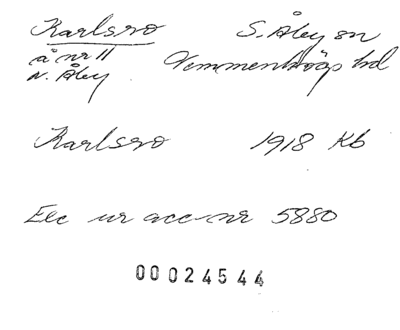 Karlsro S. Åby sn
å nr 11 Vemmenhögs hd
N. Åby
Karlsro 1918 Kb
Exc ur acc-nr 5880
00024544